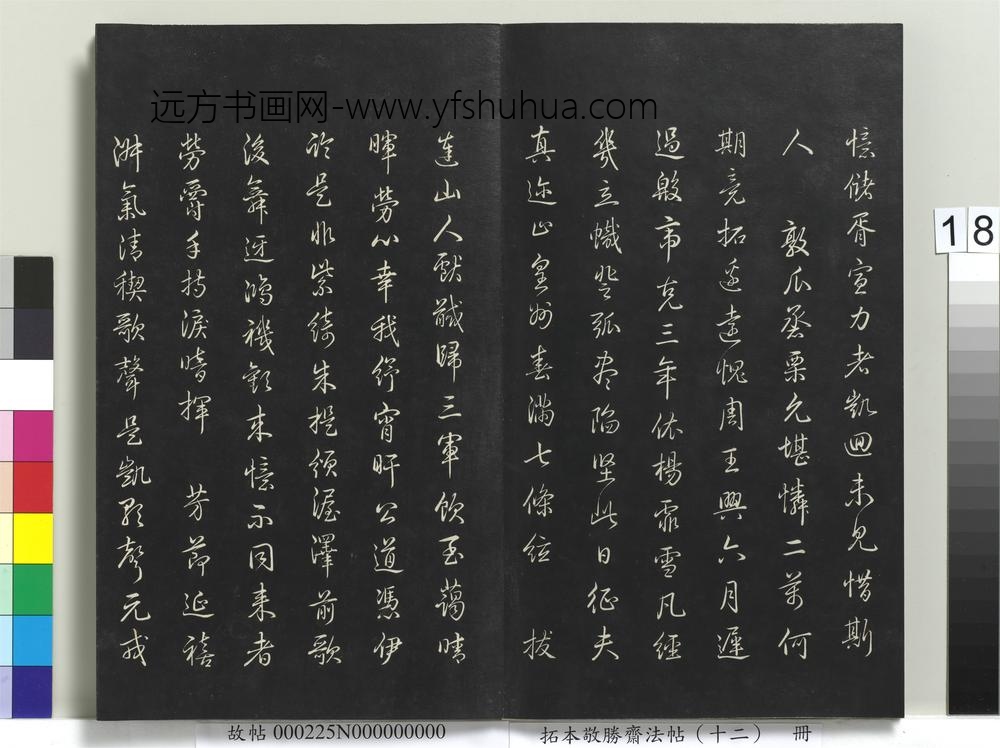 远方书画网-www.yfshuhua.com
憶儲胥宣力者凱迴未見惜斯
人 敦瓜烝栗允堪憐二萬何
期竟拓邊遠愧周王興六月遲
過殷帝克三年依楊霏雪凡經
幾立幟登弧陷堅此日征夫
真迩止皇州春滿七條絃 拔
達山人獻馘歸三軍飲至藹晴
暉勞心幸我紓宵旰公道憑伊
論是非紫綺朱提頒渥澤前歌
後舞迓鴻禨來憶不同來者
勞爵手持淚暗揮 芳節延禧
淑氣清稧歌聲是凱歌聲元戎
18
故帖 000225N000000000
拓本敬勝齋法帖（十二） 冊